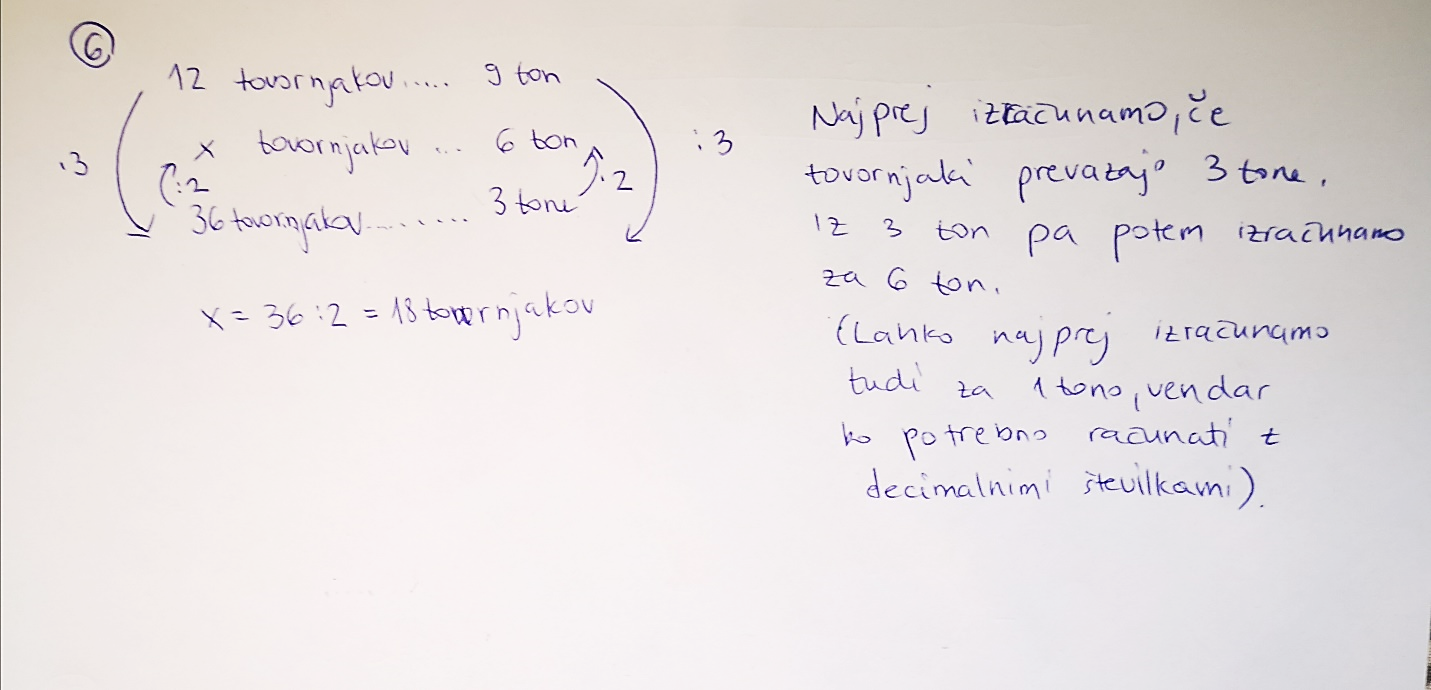 6
12 tovornjakov..... 9 ton
x tovornjakov ... 6 ton
36 tovornjakov......... 3 tone
.3
:2
.2
:3
x = 36 : 2 = 18 tovornjakov
Najprej izračunamo, če
tovornjaki prevažajo 3 tone.
Iz 3 ton pa potem izračunamo
za 6 ton.
(Lahko najprej izračunamo
tudi za 1 tono, vendar
bo potrebno računati z
decimalnimi številkami).